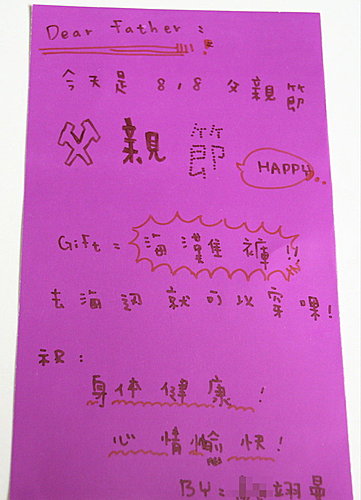 Dear Father:
今天是 8/8 父親節
父親節
HAPPY
Gift = 海灘褲!!
去海認 就可以穿嘿!
祝:
身体健康!
心情愉快!
By: 翊